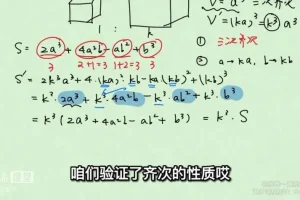 V' = (ka)³ = k³ a³
① 三次齐次
② a→ka, b→kb
S = 2a³ + 4a²b - ab² + b³
3 2+1=3 1+2=3 3
S' = 2k³a³ + 4·(ka)²·kb - ka·(kb)² + (kb)³
= k³·2a³ + k³·4a²b - k³·ab² + k³·b³
= k³(2a³ + 4a²b - ab² + b³) = k³·S
咱们验证了齐次的性质哎